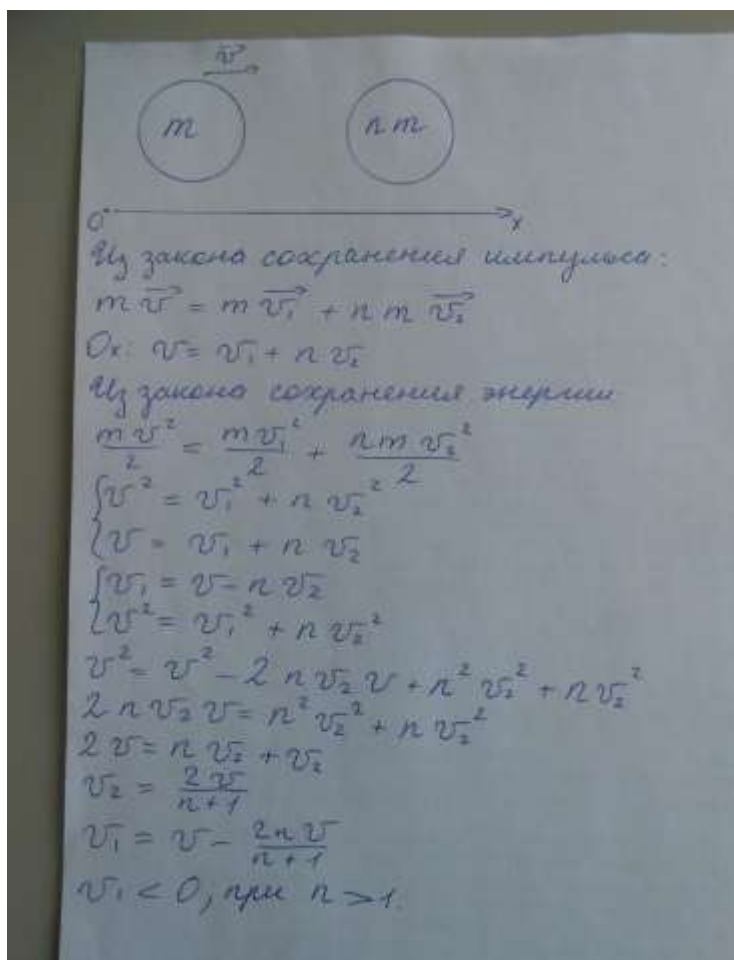 v⃗
m
nm
0 x
Из закона сохранения импульса:
m v⃗ = m v⃗₁ + n m v⃗₂
Ox: v = v₁ + n v₂
Из закона сохранения энергии
mv²/2 = mv₁²/2 + nmv₂²/2
{v² = v₁² + n v₂²
{v = v₁ + n v₂
{v₁ = v - n v₂
{v² = v₁² + n v₂²
v² = v² - 2 n v₂ v + n² v₂² + n v₂²
2 n v₂ v = n² v₂² + n v₂²
2 v = n v₂ + v₂
v₂ = 2v/(n+1)
v₁ = v - 2nv/(n+1)
v₁ < 0, при n > 1.